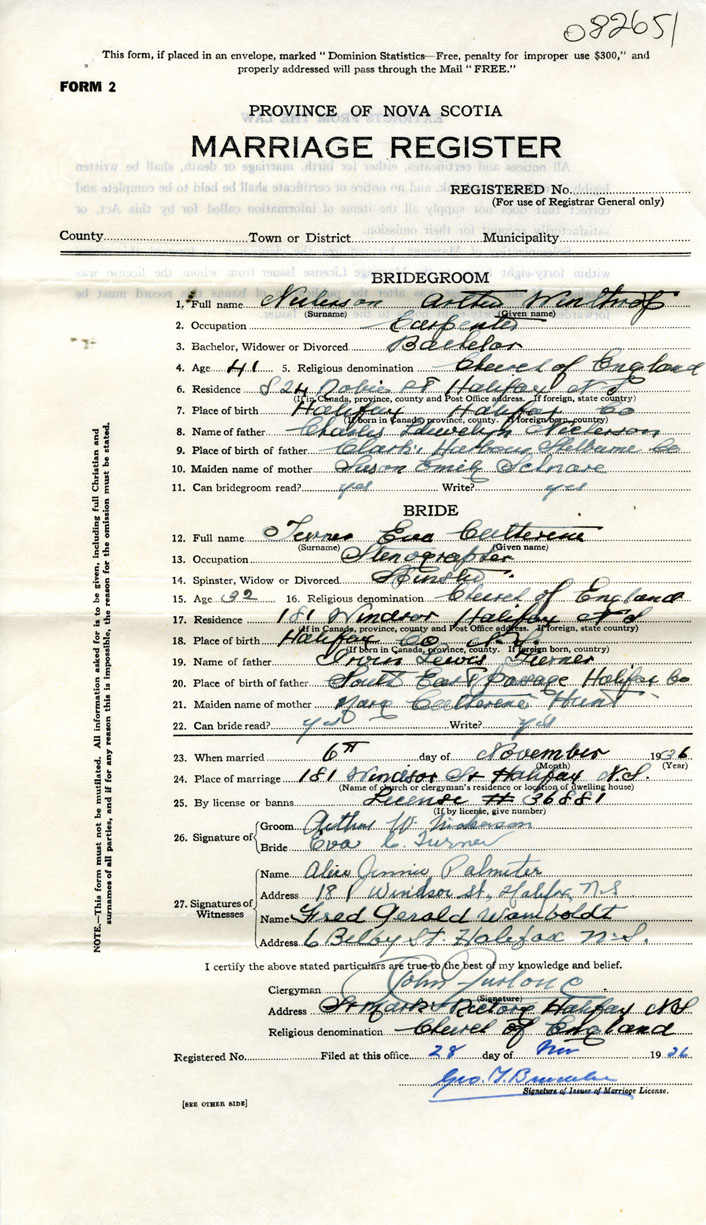 082651
This form, if placed in an envelope, marked "Dominion Statistics—Free, penalty for improper use $300," and
properly addressed will pass through the Mail "FREE."
FORM 2
PROVINCE OF NOVA SCOTIA
MARRIAGE REGISTER
REGISTERED No.
(For use of Registrar General only)
County Town or District Municipality
BRIDEGROOM
1. Full name Nickerson Arthur Winthrop
(Surname) (Given name)
2. Occupation Carpenter
3. Bachelor, Widower or Divorced Bachelor
4. Age 41 5. Religious denomination Church of England
6. Residence 824 Robie St Halifax N S
(If in Canada, province, county and Post Office address. If foreign, state country)
7. Place of birth Halifax Halifax Co
(If born in Canada, province, county. If foreign born, country)
8. Name of father Charles Llewelyn Nickerson
9. Place of birth of father Clarks Harbour Shelburne Co
10. Maiden name of mother Susan Emily Schnare
11. Can bridegroom read? yes Write? yes
BRIDE
12. Full name Turner Eva Catherine
(Surname) (Given name)
13. Occupation Stenographer
14. Spinster, Widow or Divorced Spinster
15. Age 32 16. Religious denomination Church of England
17. Residence 181 Windsor Halifax N S
(If in Canada, province, county and Post Office address. If foreign, state country)
18. Place of birth Halifax Co N.S.
(If born in Canada, province, county. If foreign born, country)
19. Name of father Lewis Turner
20. Place of birth of father South East Passage Halifax Co
21. Maiden name of mother Mary Catherine Hunt
22. Can bride read? yes Write? yes
23. When married 6th day of November 1936
(Month) (Year)
24. Place of marriage 181 Windsor St Halifax N.S.
(Name of church or clergyman's residence or location of dwelling house)
25. By license or banns License # 36881
(If by license, give number)
26. Signature of Groom Arthur W Nickerson
Bride Eva C. Turner
27. Signatures of Witnesses Name Alice Jennie Palmeter
Address 181 Windsor St, Halifax, N.S
Name Fred Gerald Wamboldt
Address 6 Bilby St. Halifax N.S.
I certify the above stated particulars are true to the best of my knowledge and belief.
Clergyman John Furlong
(Signature)
Address St Marks Rectory Halifax NS
Religious denomination Church of England
Registered No. Filed at this office 28 day of Nov 1936
Geo. T.
Signature of Issuer of Marriage License.
[SEE OTHER SIDE]
NOTE.—This form must not be mutilated. All information asked for is to be given, including full Christian and
surnames of all parties, and if for any reason this is impossible, the reason for the omission must be stated.